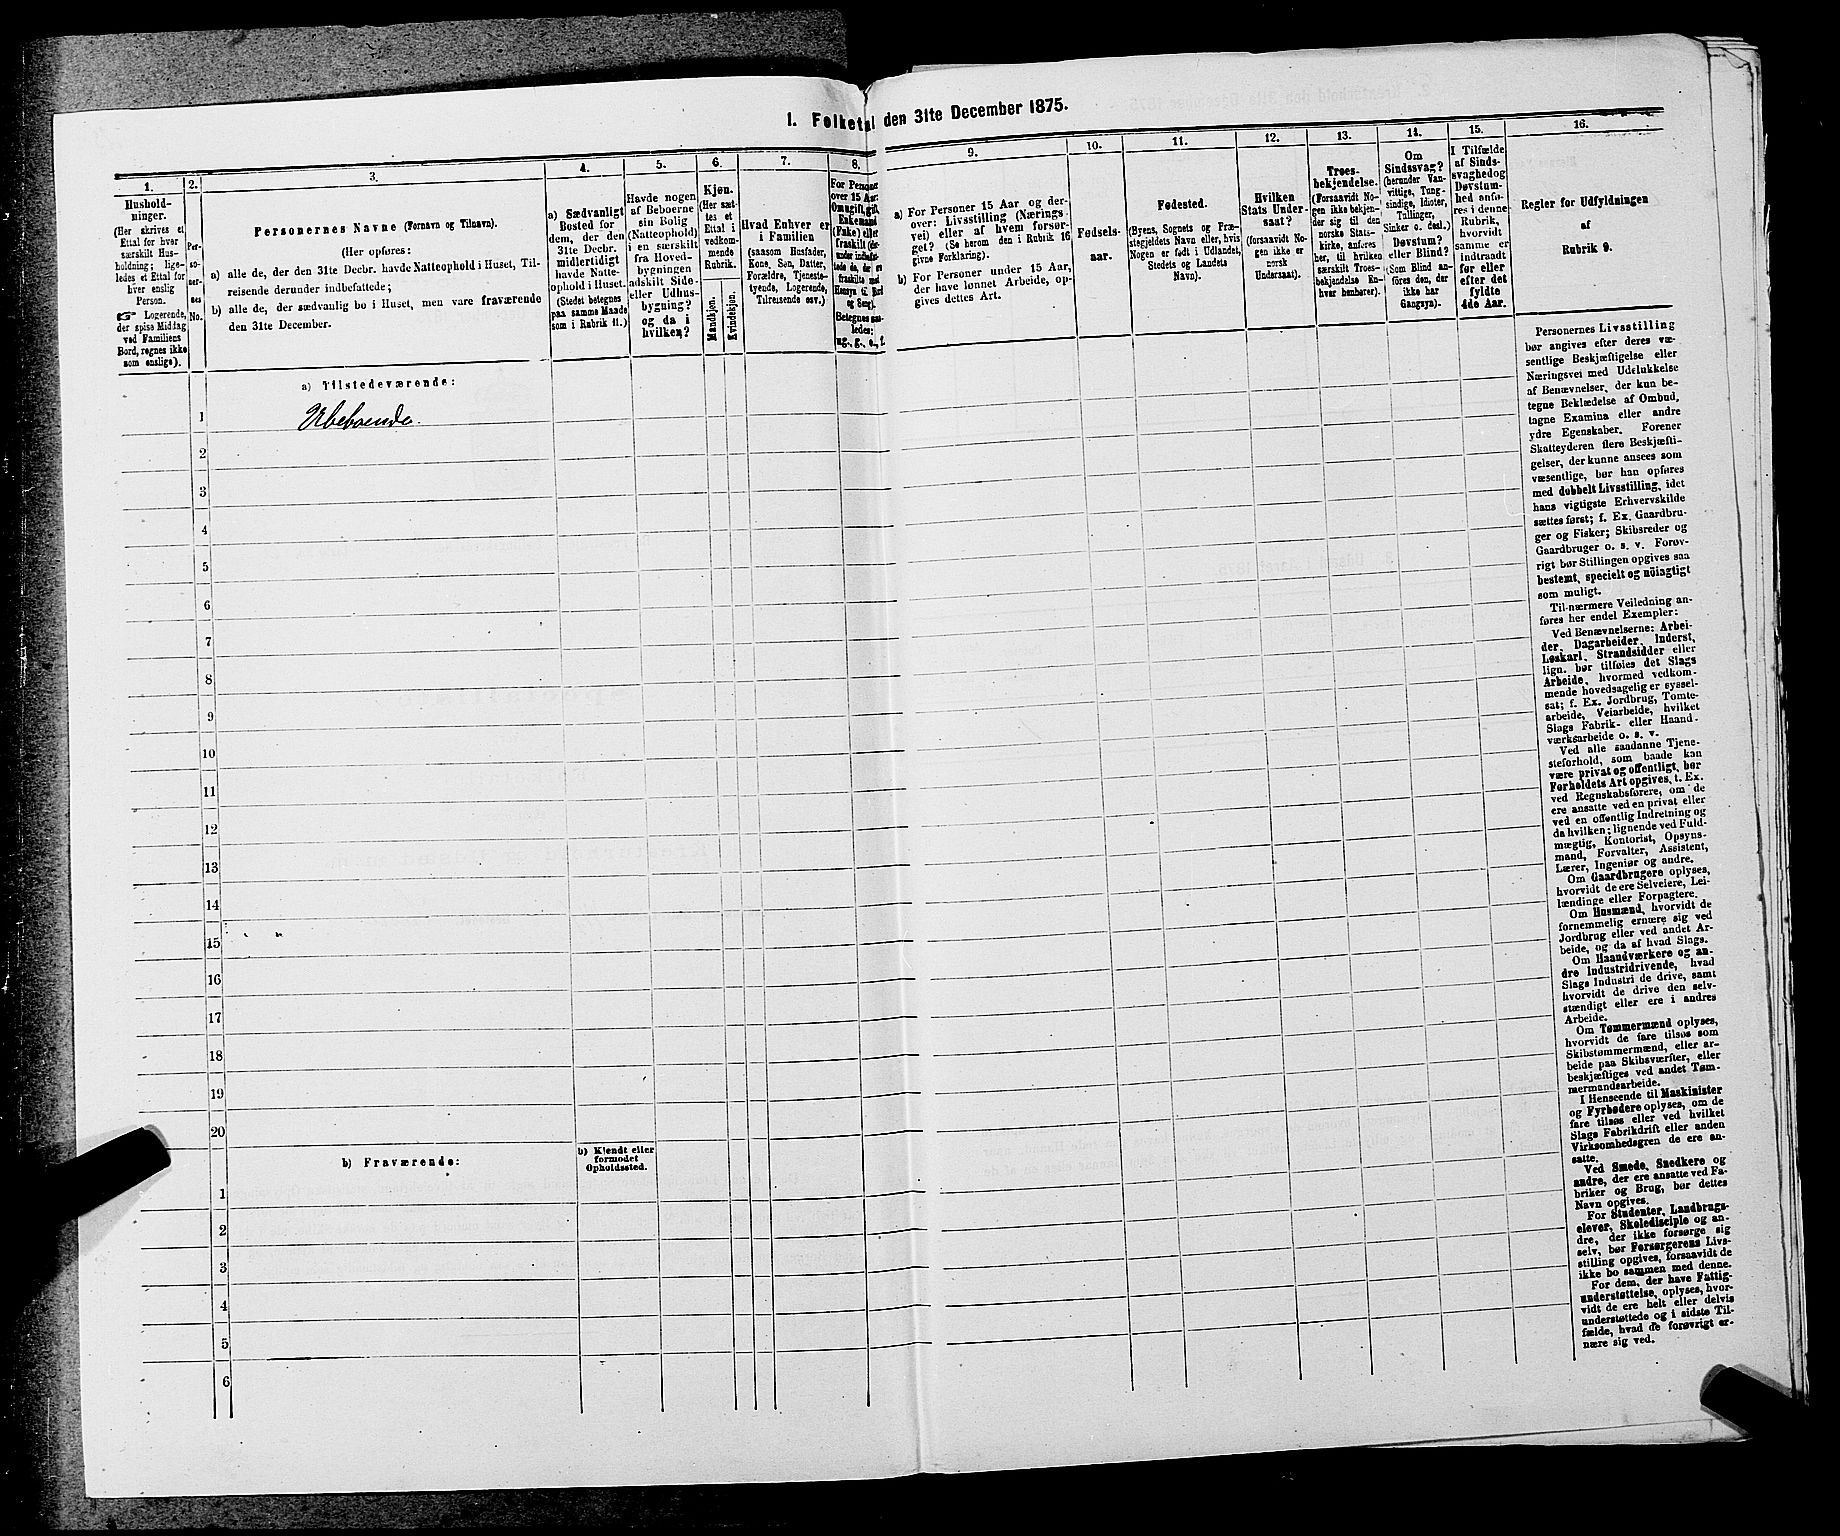 I. Folketal den 31te December 1875.
1.
Hushold-
ninger.
(Her skrives et
Ettal for hver
særskilt Hus-
holdning; lige-
ledes et Ettal for
hver enslig
Person.
☞ Logerende,
der spise Middag
ved Familiens
Bord, regnes ikke
som enslige).
2.
Per-
so-
ner-
nes
No.
3.
Personernes Navne (Fornavn og Tilnavn).
(Her opføres:
a) alle de, der den 31te Decbr. havde Natteophold i Huset, Til-
reisende derunder indbefattede;
b) alle de, der sædvanlig bo i Huset, men vare fraværende
den 31te December.
4.
a) Sædvanligt
Bosted for
dem, der den
31te Decbr.
midlertidigt
havde Natte-
ophold i Huset.
(Stedet betegnes
paa samme Maade
som i Rubrik 11.)
5.
Havde nogen
af Beboerne
sin Bolig
(Natteophold)
i en særskilt
fra Hoved-
bygningen
adskilt Side-
eller Udhus-
bygning?
og da i
hvilken?
6.
Kjøn.
(Her sæt-
tes et
Ettal i
vedkom-
mende
Rubrik.
Mandkjøn.
Kvindekjøn.
7.
Hvad Enhver er
i Familien
(saasom Husfader,
Kone, Søn, Datter,
Forældre, Tjeneste-
tyende, Logerende,
Tilreisende osv.)
8.
For Personer
over 15 Aar:
Om ugift, gift,
Enkemand
(Enke) eller
fraskilt (der-
under indbefat-
tede de, der er
fraskilte med
Hensyn til Bord
og Seng).
Betegnes saa-
ledes:
ug., g., e., f.
9.
a) For Personer 15 Aar og der-
over: Livsstilling (Nærings-
vei) eller af hvem forsør-
get? (Se herom den i Rubrik 16
givne Forklaring).
b) For Personer under 15 Aar,
der have lønnet Arbeide, op-
gives dettes Art.
10.
Fødsels-
aar.
11.
Fødested.
(Byens, Sognets og Præ-
stegjeldets Navn eller, hvis
Nogen er født i Udlandet,
Stedets og Landets
Navn).
12.
Hvilken
Stats Under-
saat?
(forsaavidt No-
gen ikke er
norsk
Undersaat).
13.
Troes-
bekjendelse.
(Forsaavidt No-
gen ikke bekjen-
der sig til den
norske Stats-
kirke, anføres
her, til hvilken
særskilt Troes-
bekjendelse En-
hver henhører).
14.
Om
Sindssvag?
(herunder Van-
vittige, Tung-
sindige, Idioter,
Tullinger,
Sinker o. desl.)
Døvstum?
eller Blind?
(Som Blind an-
føres den, der
ikke har
Gangsyn).
15.
I Tilfælde
af Sinds-
svaghed og
Døvstum-
hed anfø-
res i denne
Rubrik,
hvorvidt
samme er
indtraadt
før eller
efter det
fyldte
4de Aar.
16.
Regler for Udfyldningen
af
Rubrik 9.
a) Tilstedeværende:
1 Ubeboende.
2
3
4
5
6
7
8
9
10
11
12
13
14
15
16
17
18
19
20
b) Fraværende:
b) Kjendt eller
formodet
Opholdssted.
1
2
3
4
5
6
Personernes Livsstilling
bør angives efter deres væ-
sentlige Beskjæftigelse eller
Næringsvei med Udelukkelse
af Benævnelser, der kun be-
tegne Beklædelse af Ombud,
tagne Examina eller andre
ydre Egenskaber. Forener
Skatteyderen flere Beskjæfti-
gelser, der kunne ansees som
væsentlige, bør han opføres
med dobbelt Livsstilling, idet
hans vigtigste Erhvervskilde
sættes først; f. Ex. Gaardbru-
ger og Fisker; Skibsreder og
Gaardbruger o. s. v. Forøv-
rigt bør Stillingen opgives saa
bestemt, specielt og nøiagtigt
som muligt.
Til nærmere Veiledning an-
føres her endel Exempler:
Ved Benævnelserne: Arbei-
der, Dagarbeider, Inderst,
Løskarl, Strandsidder eller
lign. bør tilføies det Slags
Arbeide, hvormed vedkom-
mende hovedsagelig er syssel-
sat; f. Ex. Jordbrug, Tomte-
arbeide, Veiarbeide, hvilket
Slags Fabrik- eller Haand-
værksarbeide o. s. v.
Ved alle saadanne Tjene-
steforhold, som baade kan
være privat og offentligt, bør
Forholdets Art opgives, t. Ex.
ved Regnskabsførere, om de
ere ansatte ved en privat eller
ved en offentlig Indretning og
da hvilken; lignende ved Fuld-
mægtig, Kontorist, Opsyns-
mand, Forvalter, Assistent,
Lærer, Ingeniør og andre.
Om Gaardbrugere oplyses,
hvorvidt de ere Selveiere, Lei-
lændinge eller Forpagtere.
Om Husmænd, hvorvidt de
fornemmelig ernære sig ved
Jordbrug eller ved andet Ar-
beide, og da af hvad Slags.
Om Haandværkere og an-
dre Industridrivende, hvad
Slags Industri de drive, samt
hvorvidt de drive den selv-
stændigt eller ere i andres
Arbeide.
Om Tømmermænd oplyses,
hvorvidt de fare tilsøs som
Skibstømmermænd, eller ar-
beide paa Skibsværfter, eller
beskjæftiges ved andet Tøm-
mermandsarbeide.
I Henseende til Maskinister
og Fyrbødere oplyses, om de
fare tilsøs eller ved hvilket
Slags Fabrikdrift eller anden
Virksomhedsgren de ere an-
satte.
Ved Smede, Snedkere og
andre, der ere ansatte ved Fa-
briker og Brug, bør dettes
Navn opgives.
For Studenter, Landbrugs-
elever, Skoledisciple og an-
dre, der ikke forsørge sig
selv, bør Forsørgerens Livs-
stilling opgives, forsaavidt de
ikke bo sammen med denne.
For dem, der have Fattig-
understøttelse, oplyses, hvor-
vidt de ere helt eller delvis
understøttede og i sidste Til-
fælde, hvad de forøvrigt er-
nære sig ved.